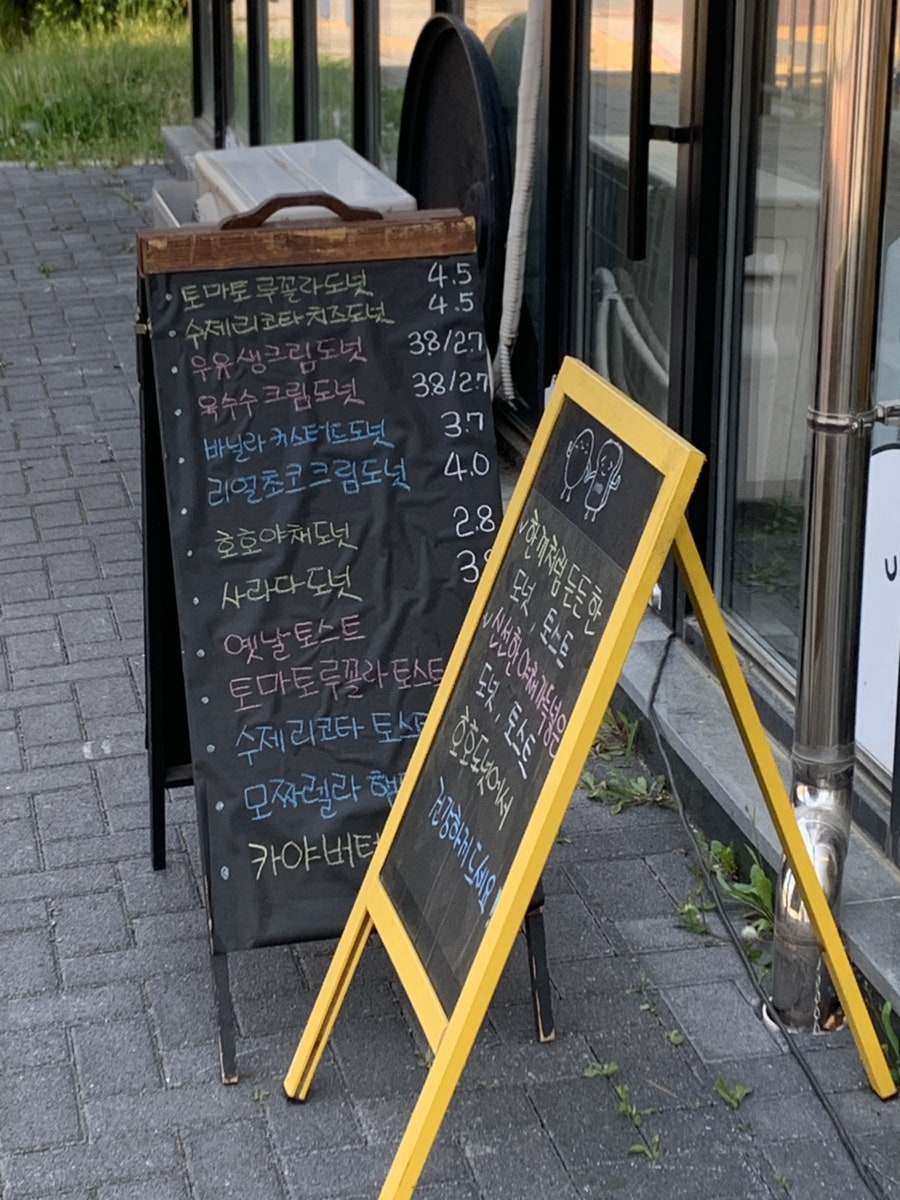 토마토루꼴라도넛 4.5
수제리코타치즈도넛 4.5
우유생크림도넛 3.8/2.7
옥수수크림도넛 3.8/2.7
바닐라커스터드도넛 3.7
리얼초코크림도넛 4.0
호호야채도넛 2.8
사라다도넛
옛날토스트
토마토루꼴라토스트
수제리코타 토스트
모짜렐라
카야버터
한끼처럼 든든한
도넛, 토스트
신선한야채가득넣은
도넛, 토스트
호호도넛에서
건강하게드세요